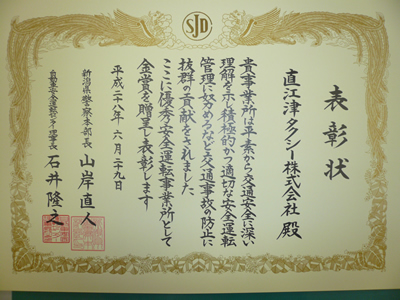 SJD
表彰状
直江津タクシー株式会社 殿
貴事業所は平素から交通安全に深い
理解を示し積極的かつ適切な安全運転
管理に努めるなど交通事故の防止に
抜群の貢献をされました
ここに優秀安全運転事業所として
金賞を贈呈して表彰します
平成二十八年 六月二十九日
新潟県警察本部長 山岸直人
自動車安全運転センター理事長 石井隆之